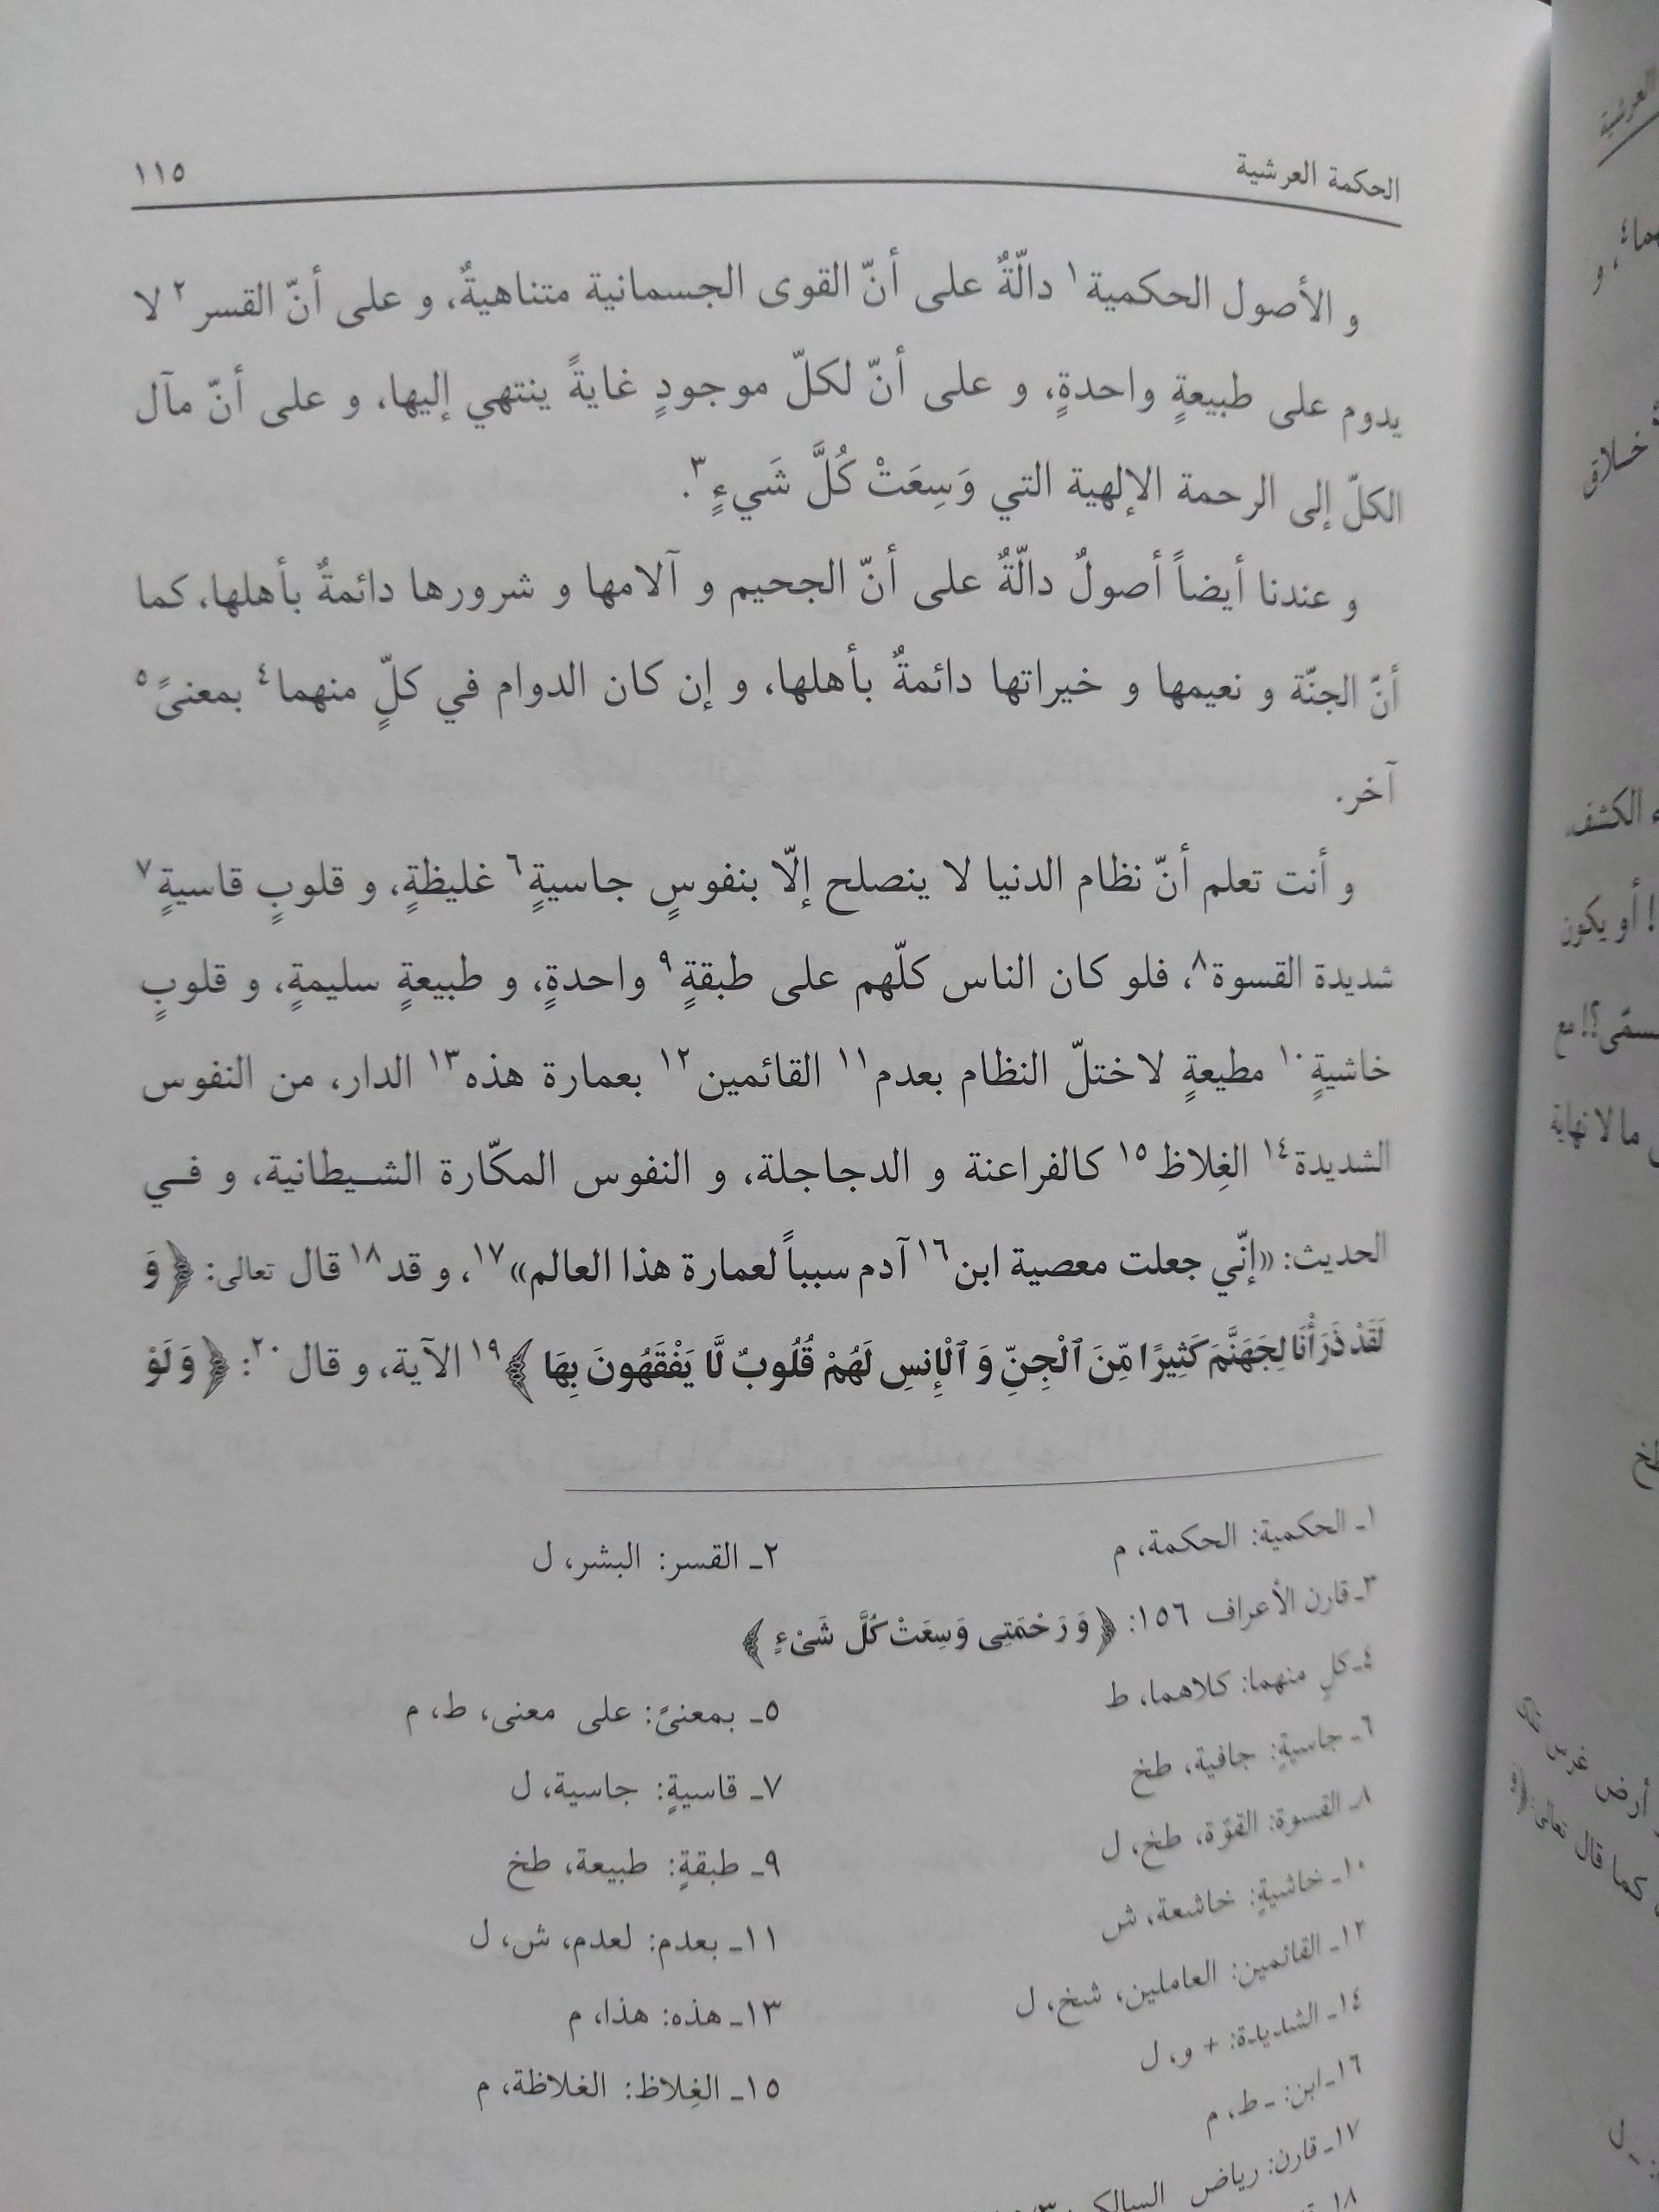 الحكمة العرشية ١١٥
و الأصول الحكمية١ دالّةٌ على أنّ القوى الجسمانية متناهيةٌ، و على أنّ القسر٢ لا
يدوم على طبيعةٍ واحدةٍ، و على أنّ لكلّ موجودٍ غايةً ينتهي إليها، و على أنّ مآل
الكلّ إلى الرحمة الإلهية التي وَسِعَتْ كُلَّ شَيءٍ٣.
و عندنا أيضاً أصولٌ دالّةٌ على أنّ الجحيم و آلامها و شرورها دائمةٌ بأهلها، كما
أنّ الجنّة و نعيمها و خيراتها دائمةٌ بأهلها، و إن كان الدوام في كلٍّ منهما٤ بمعنىً٥
آخر.
و أنت تعلم أنّ نظام الدنيا لا ينصلح إلّا بنفوسٍ جاسيةٍ٦ غليظةٍ، و قلوبٍ قاسيةٍ٧
شديدة القسوة٨، فلو كان الناس كلّهم على طبقةٍ٩ واحدةٍ، و طبيعةٍ سليمةٍ، و قلوبٍ
خاشيةٍ١٠ مطيعةٍ لاختلّ النظام بعدم١١ القائمين١٢ بعمارة هذه١٣ الدار، من النفوس
الشديدة١٤ الغِلاظ١٥ كالفراعنة و الدجاجلة، و النفوس المكّارة الشيطانية، و في
الحديث: «إنّي جعلت معصية ابن١٦ آدم سبباً لعمارة هذا العالم»١٧، و قد١٨ قال تعالى: ﴿وَ
لَقَدْ ذَرَأْنَا لِجَهَنَّمَ كَثِيرًا مِّنَ ٱلْجِنِّ وَ ٱلْإِنسِ لَهُمْ قُلُوبٌ لَّا يَفْقَهُونَ بِهَا﴾١٩ الآية، و قال٢٠: ﴿وَ لَوْ
١ـ الحكمية: الحكمة، م ٢ـ القسر: البشر، ل
٣ـ قارن الأعراف ١٥٦: ﴿وَ رَحْمَتِى وَسِعَتْ كُلَّ شَىْءٍ﴾
٤ـ كلٍ منهما: كلاهما، ط ٥ـ بمعنىً: على معنى، ط، م
٦ـ جاسيةٍ: جافية، طخ ٧ـ قاسيةٍ: جاسية، ل
٨ـ القسوة: القوّة، طخ، ل ٩ـ طبقةٍ: طبيعة، طخ
١٠ـ خاشيةٍ: خاشعة، ش ١١ـ بعدم: لعدم، ش، ل
١٢ـ القائمين: العاملين، شخ، ل ١٣ـ هذه: هذا، م
١٤ـ الشديدة: + و، ل ١٥ـ الغِلاظ: الغلاظة، م
١٦ـ ابن: ـ ط، م
١٧ـ قارن: رياض
١٨ـ
العرشية
خلاق
الكشف
! أو يكون
مع
ما لا نهاية
أرض
كما قال تعالى